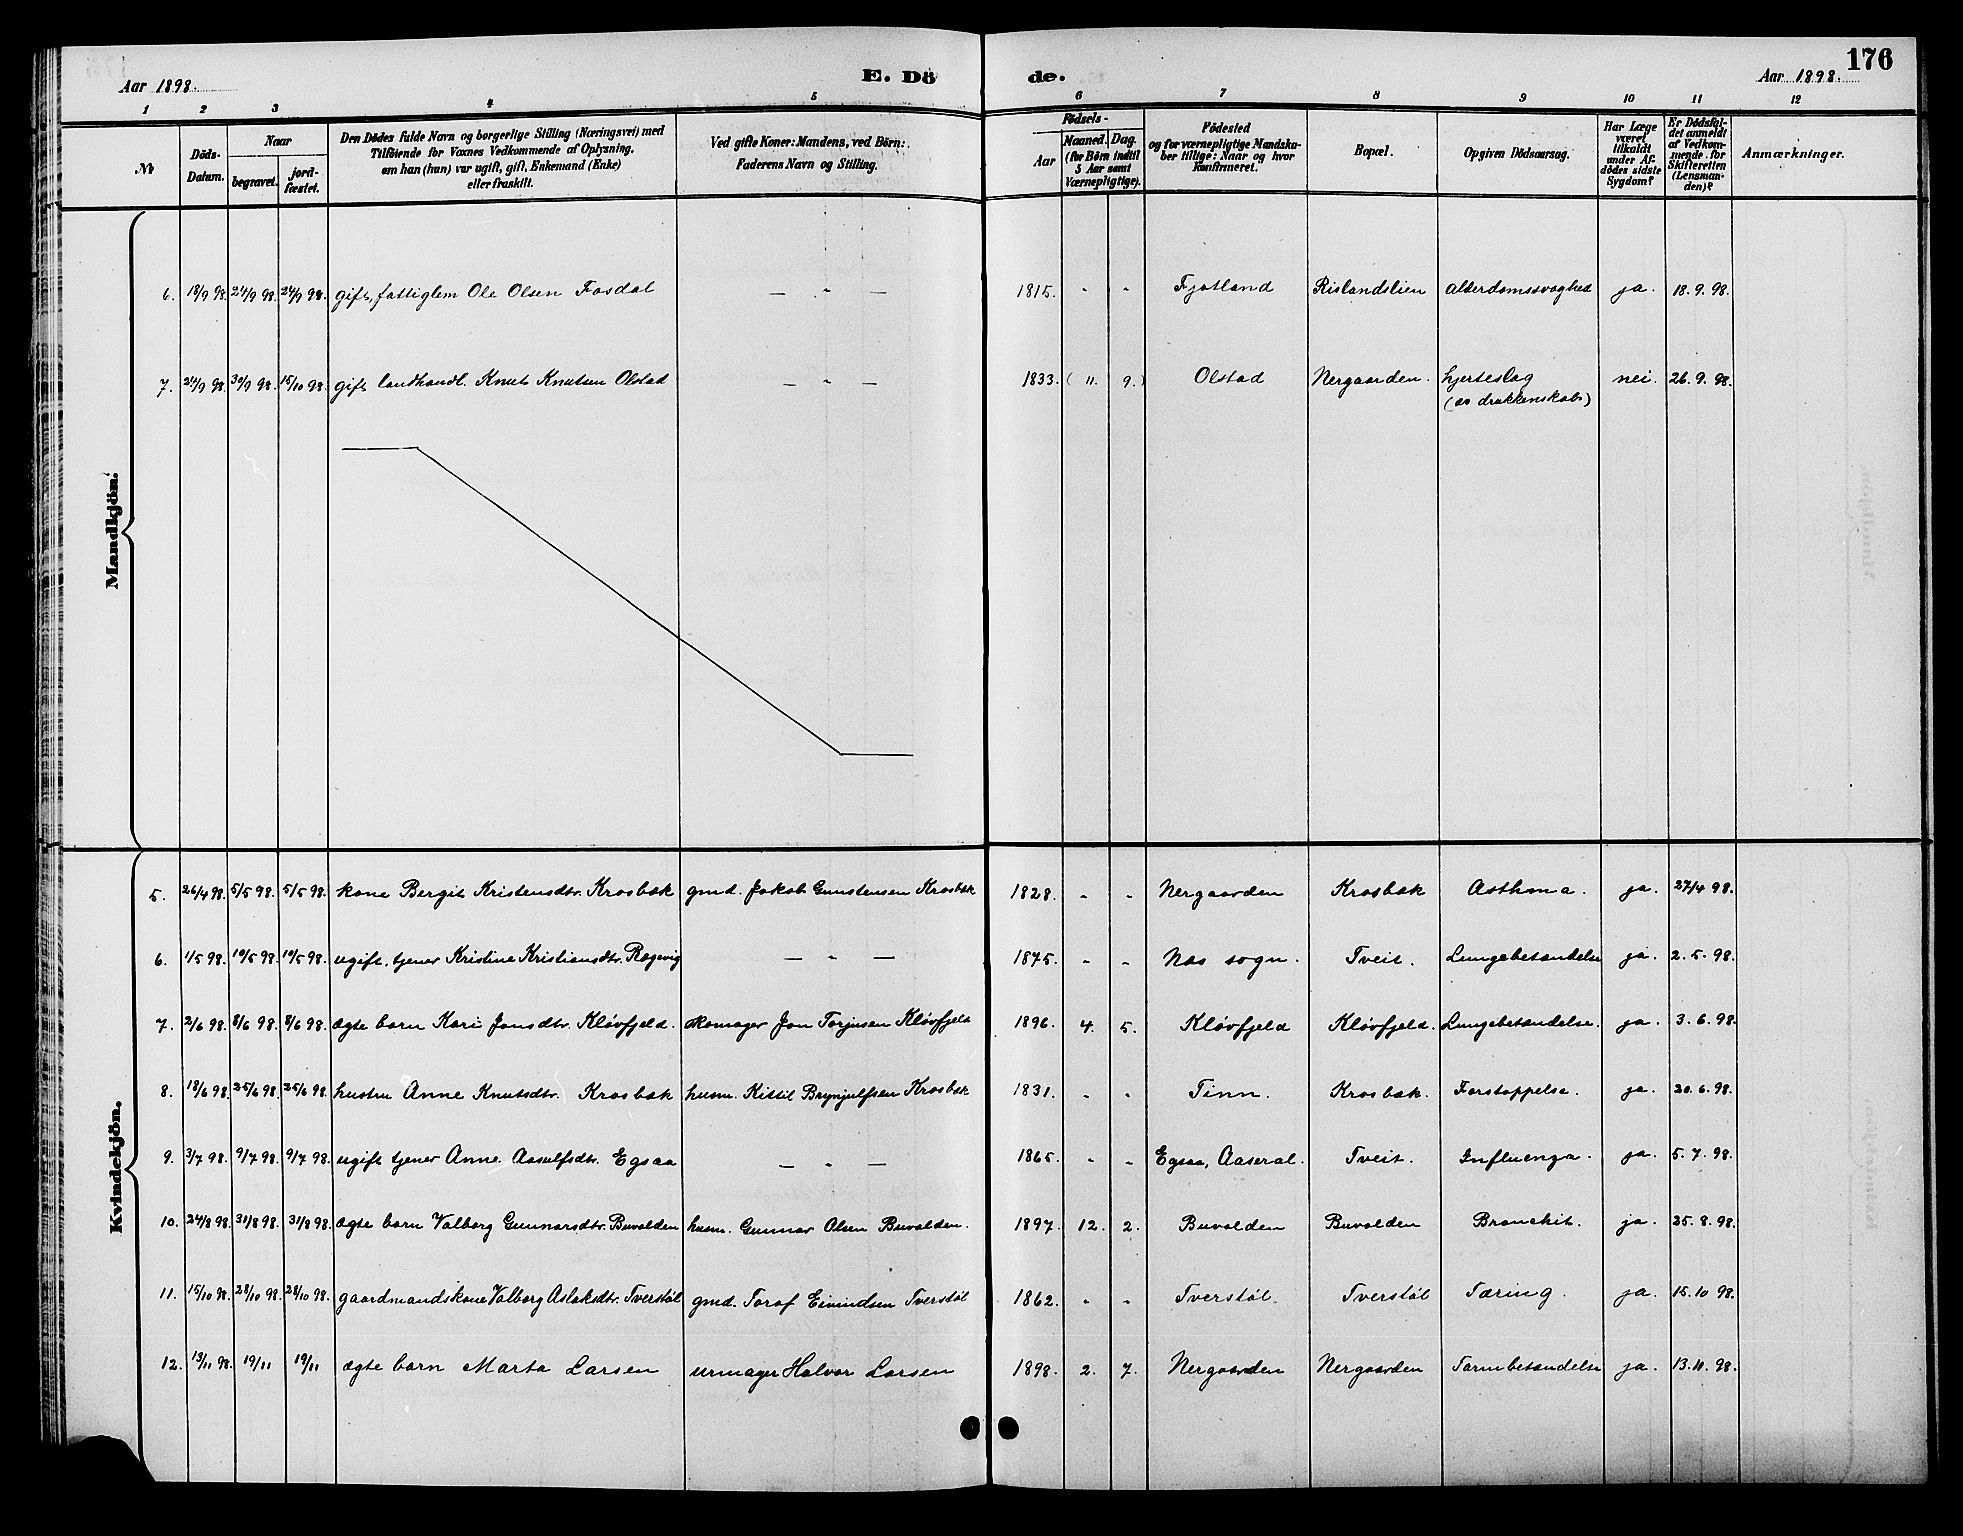 176
Aar 1898. E. Dö de. Aar 1898.
1 2 3 4 5 6 7 8 9 10 11 12
№ Döds-Datum. Naar begravet. jordfæstet. Den Dödes fulde Navn og borgerlige Stilling (Næringsvei) med Tilföiende for Voxnes Vedkommende af Oplysning, om han (hun) var ugift, gift, Enkemand (Enke) eller fraskilt. Ved gifte Koner: Mandens, ved Börn: Faderens Navn og Stilling. Födsels- Aar Maaned. Dag. (for Börn indtil 5 Aar samt Værnepligtige). Födested og for værnepligtige Mandskaber tillige: Naar og hvor konfirmeret. Bopæl. Opgiven Dödsaarsag. Har Læge været tilkaldt under Afdödes sidste Sygdom? Er Dödsfaldet anmeldt af Vedkommende for Skifteretten (Lensmanden)? Anmærkninger.
Mandkjön.
6. 18/9 98. 24/9 98. 24/9 98. gift, fattiglem Ole Olsen Fosdal — " — 1815. - - Fjotland Rislandslien alderdomssvaghed ja. 18. 9. 98.
7. 24/9 98. 30/9 98. 15/10 98. gift landhandl. Knut Knutsen Olstad — " — 1833. ( 11. 9. ) Olstad Nergaarden. hjerteslag nei. 26. 9. 98.
(av drukkenskab)
Kvindekjön.
5. 26/4 98. 5/5 98. 5/5 98. kone Bergit Kristensdtr. Krosbæk gmd. Jakob Gunstensen Krosbæk 1828. - - Nergaarden Krosbæk Asthma. ja. 27/4 98.
6. 1/5 98. 10/5 98. 10/5 98. ugift, tjener Kristine Kristiansdtr. Røgevig — " — 1875. - - Næs sogn. Tveit. Lungebetændelse ja. 2. 5. 98.
7. 2/6 98. 8/6 98. 8/6 98. ægte barn Kari Jonsdtr. Kløvfjeld. skomager Jon Torjusen Kløvfjeld 1896. 4. 5. Kløvfjeld Kløvfjeld. Lungebetændelse. ja. 3. 6. 98.
8. 18/6 98. 25/6 98. 25/6 98. hustru Anne Knutsdtr. Krosbæk husm. Kittil Brynjulfsen Krosbæk 1831. - - Tinn. Krosbæk. Forstoppelse. ja. 20. 6. 98.
9. 3/7 98. 9/7 98. 9/7 98. ugift tjener Anne Aasulfsdtr. Egsaa — " — 1865. - - Egsaa, Aaseral. Tveit. Influenza. ja. 5. 7. 98.
10. 24/8 98. 31/8 98. 31/8 98. ægte barn Valborg Gunnarsdtr. Buvolden husm. Gunnar Olsen Buvolden. 1897. 12. 2. Buvolden Buvolden Bronchit. ja. 25. 8. 98.
11. 15/10 98. 28/10 98. 28/10 98. gaardmandskone Valborg Aslaksdtr. Tverstøl gmd. Torof Eivindsen Tverstøl 1862. - - Tverstøl. Tverstøl Tæring. ja. 15. 10 98.
12. 13/11 98. 19/11 19/11 ægte barn Marta Larsen urmager Halvor Larsen 1898. 2. 7. Nergaarden Nergaarden Tarmbetændelse ja. 13. 11. 98.